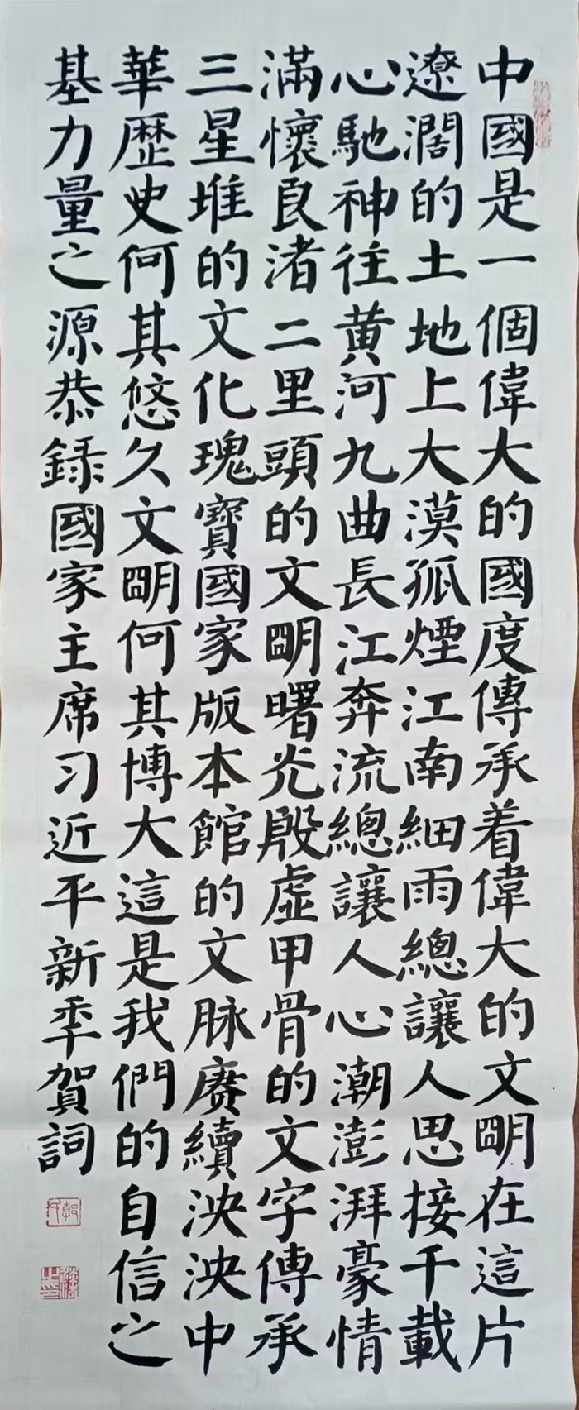 中國是一個偉大的國度傳承着偉大的文朙在這片
遼濶的土地上大漠孤煙江南細雨總讓人思接千載
心馳神往黄河九曲長江奔流總讓人心潮澎湃豪情
滿懷良渚二里頭的文朙曙光殷虛甲骨的文字傳承
三星堆的文化瑰寶國家版本館的文脉赓續泱泱中
華歴史何其悠久文朙何其博大這是我們的自信之
基力量之源恭録國家主席习近平新年賀詞